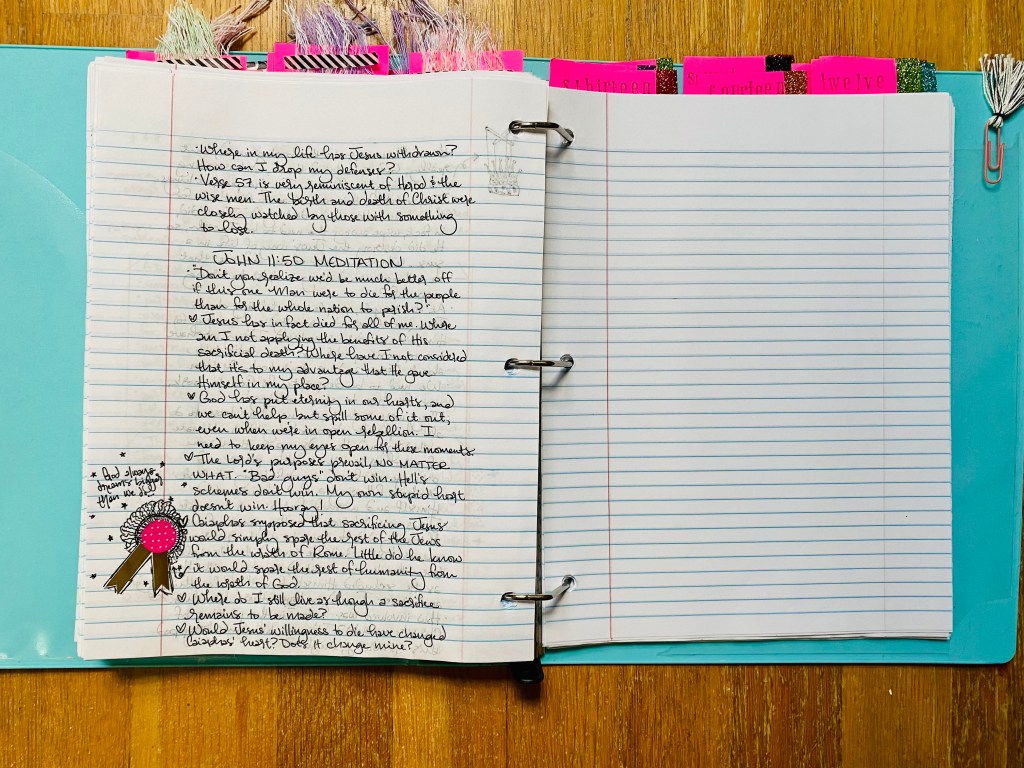 sthirteen
fourteen
twelve
· Where in my life has Jesus withdrawn?
How can I drop my defenses?
· Verse 57 is very reminiscent of Herod & the
wise men. The birth and death of Christ were
closely watched by those with something
to lose.
JOHN 11:50 MEDITATION
· "Don't you realize we'd be much better off
if this one Man were to die for the people
than for the whole nation to perish?"
♡ Jesus has in fact died for all of me. Where
am I not applying the benefits of His
sacrificial death? Where have I not considered
that it's to my advantage that He gave
Himself in my place?
♡ God has put eternity in our hearts, and
we can't help but spill some of it out,
even when we're in open rebellion. I
need to keep my eyes open for these moments.
♡ The Lord's purposes prevail, NO MATTER
WHAT. "Bad guys" don't win. Hell's
schemes don't win. My own stupid heart
doesn't win. Hooray!
♡ Caiaphas supposed that sacrificing Jesus
would simply spare the rest of the Jews
from the wrath of Rome. Little did he know
it would spare the rest of humanity from
the wrath of God.
♡ Where do I still live as though a sacrifice
remains to be made?
♡ Would Jesus' willingness to die have changed
Caiaphas' heart? Does it change mine?
God always
dreams bigger
than we do